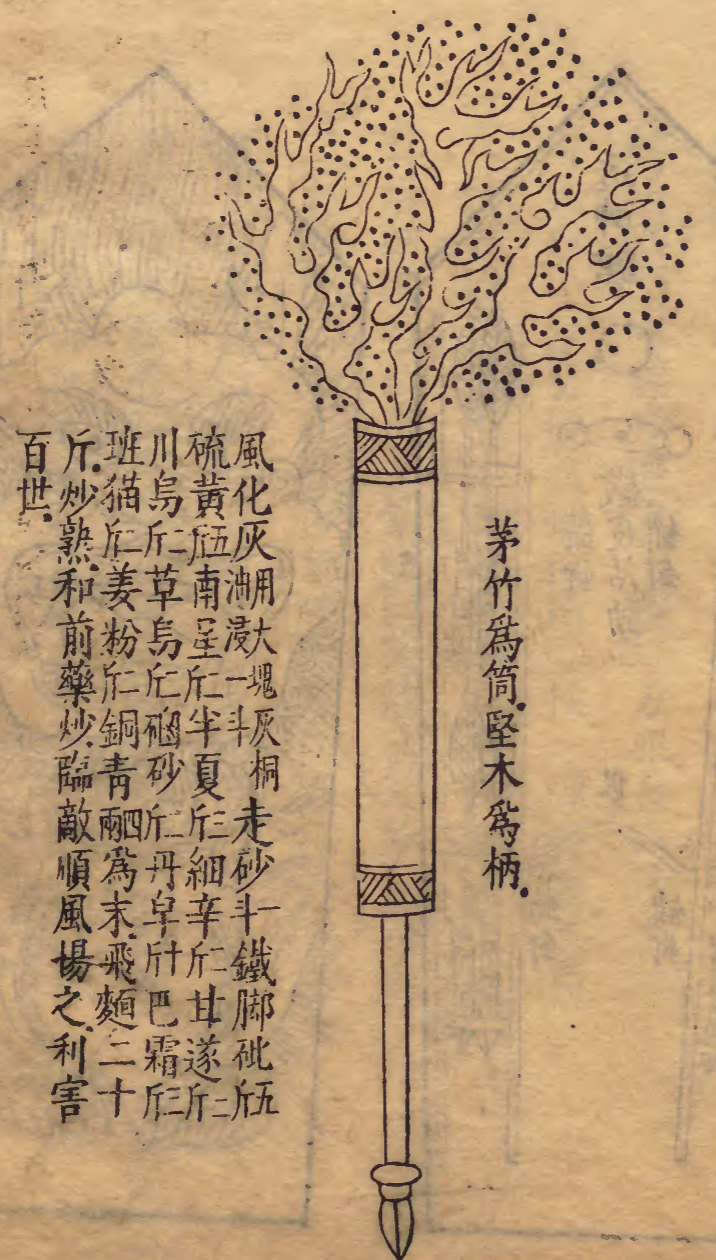 茅竹爲筒.堅木爲柄.
風化灰用大塊灰桐油浸一斗走砂一斗鐵脚砒五斤
硫黃五斤南星二斤半夏三斤細辛二斤甘遂二斤
川烏二斤草烏二斤硇砂二斤丹皁十斤巴霜三斤
班猫二斤姜粉二斤銅青四兩爲末.飛麵二十
斤.炒熟.和前藥炒.臨敵順風揚之.利害
百世.